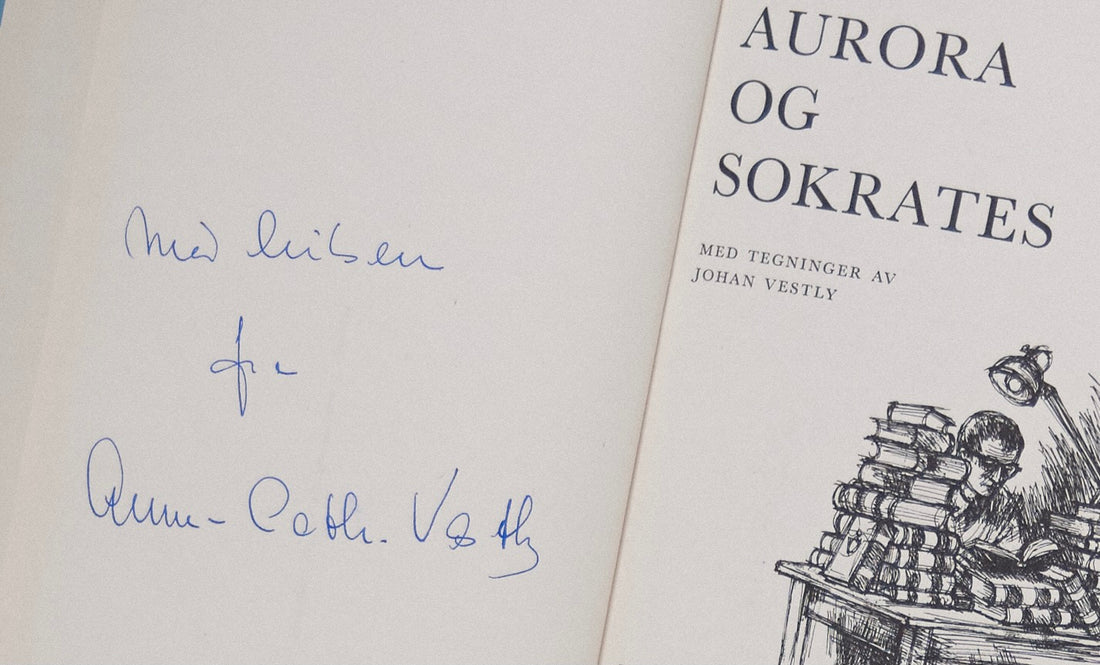 Med hilsen
fra
Anne-Cath. Vestly
AURORA
OG
SOKRATES
MED TEGNINGER AV
JOHAN VESTLY